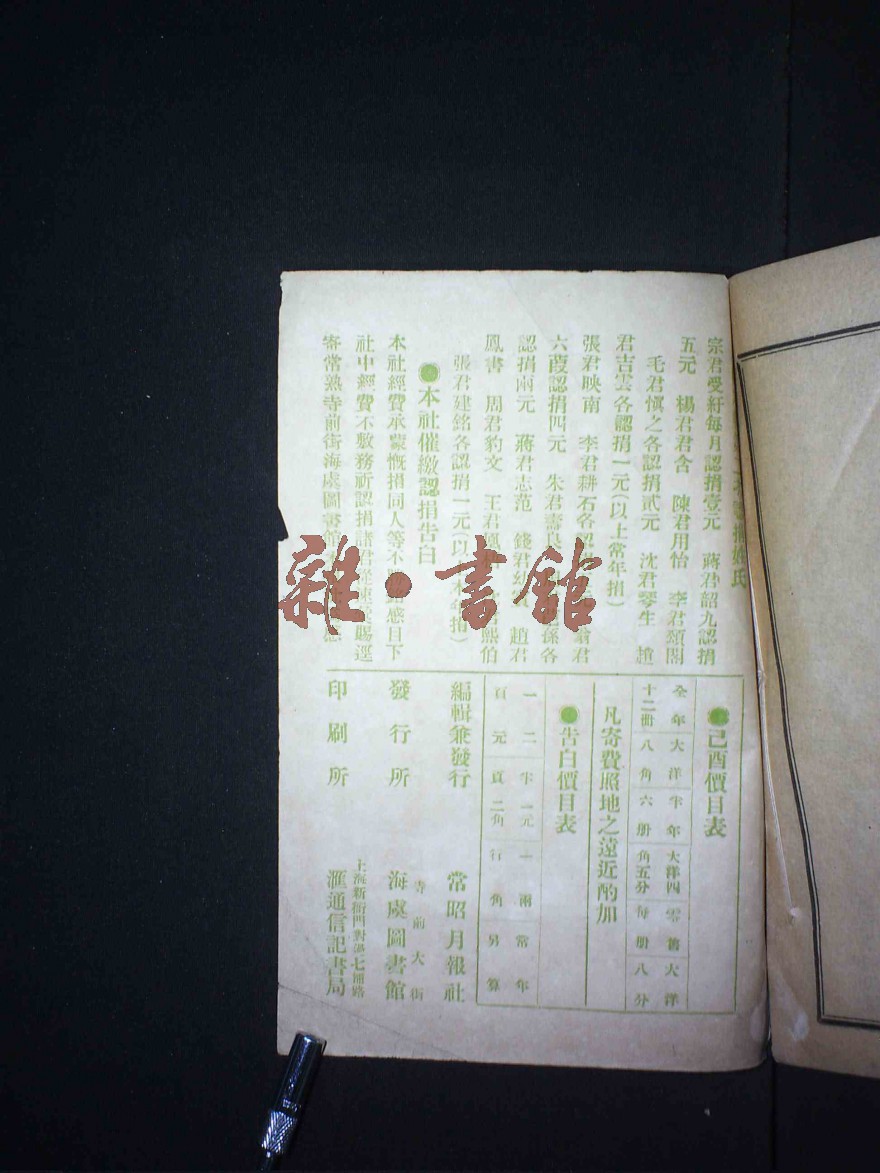 捐姓氏
宗君受紆每月認捐壹元　蔣君韶九認捐
五元　楊君君含　陳君用怡　李君頴閣
毛君愼之各認捐貳元　沈君琴生　趙
君吉雲各認捐一元(以上常年捐)
張君映南　李君耕石各認　君
六葭認捐四元　朱君壽良　孫各
認捐兩元　蔣君志范　錢君　趙君
鳳書　周君豹文　王君　熙伯
張君建銘各認捐一元(以　年捐)
●本社催繳認捐告白
本社經費承蒙慨捐同人等不　感目下
社中經費不敷務祈認捐諸君從速　賜逕
寄常熟寺前街海虞圖書館
●己酉價目表
全年大洋半年大洋四零售大洋
十二冊八角六册角五分每册八分
凡寄費照地之遠近酌加
●告白價目表
一二半一元一兩常年
頁元頁二角行角另算
編輯兼發行　常昭月報社
寺前大街
發行所　海虞圖書館
上海新衙門對過七浦路
印刷所　滙通信記書局
雜·書館